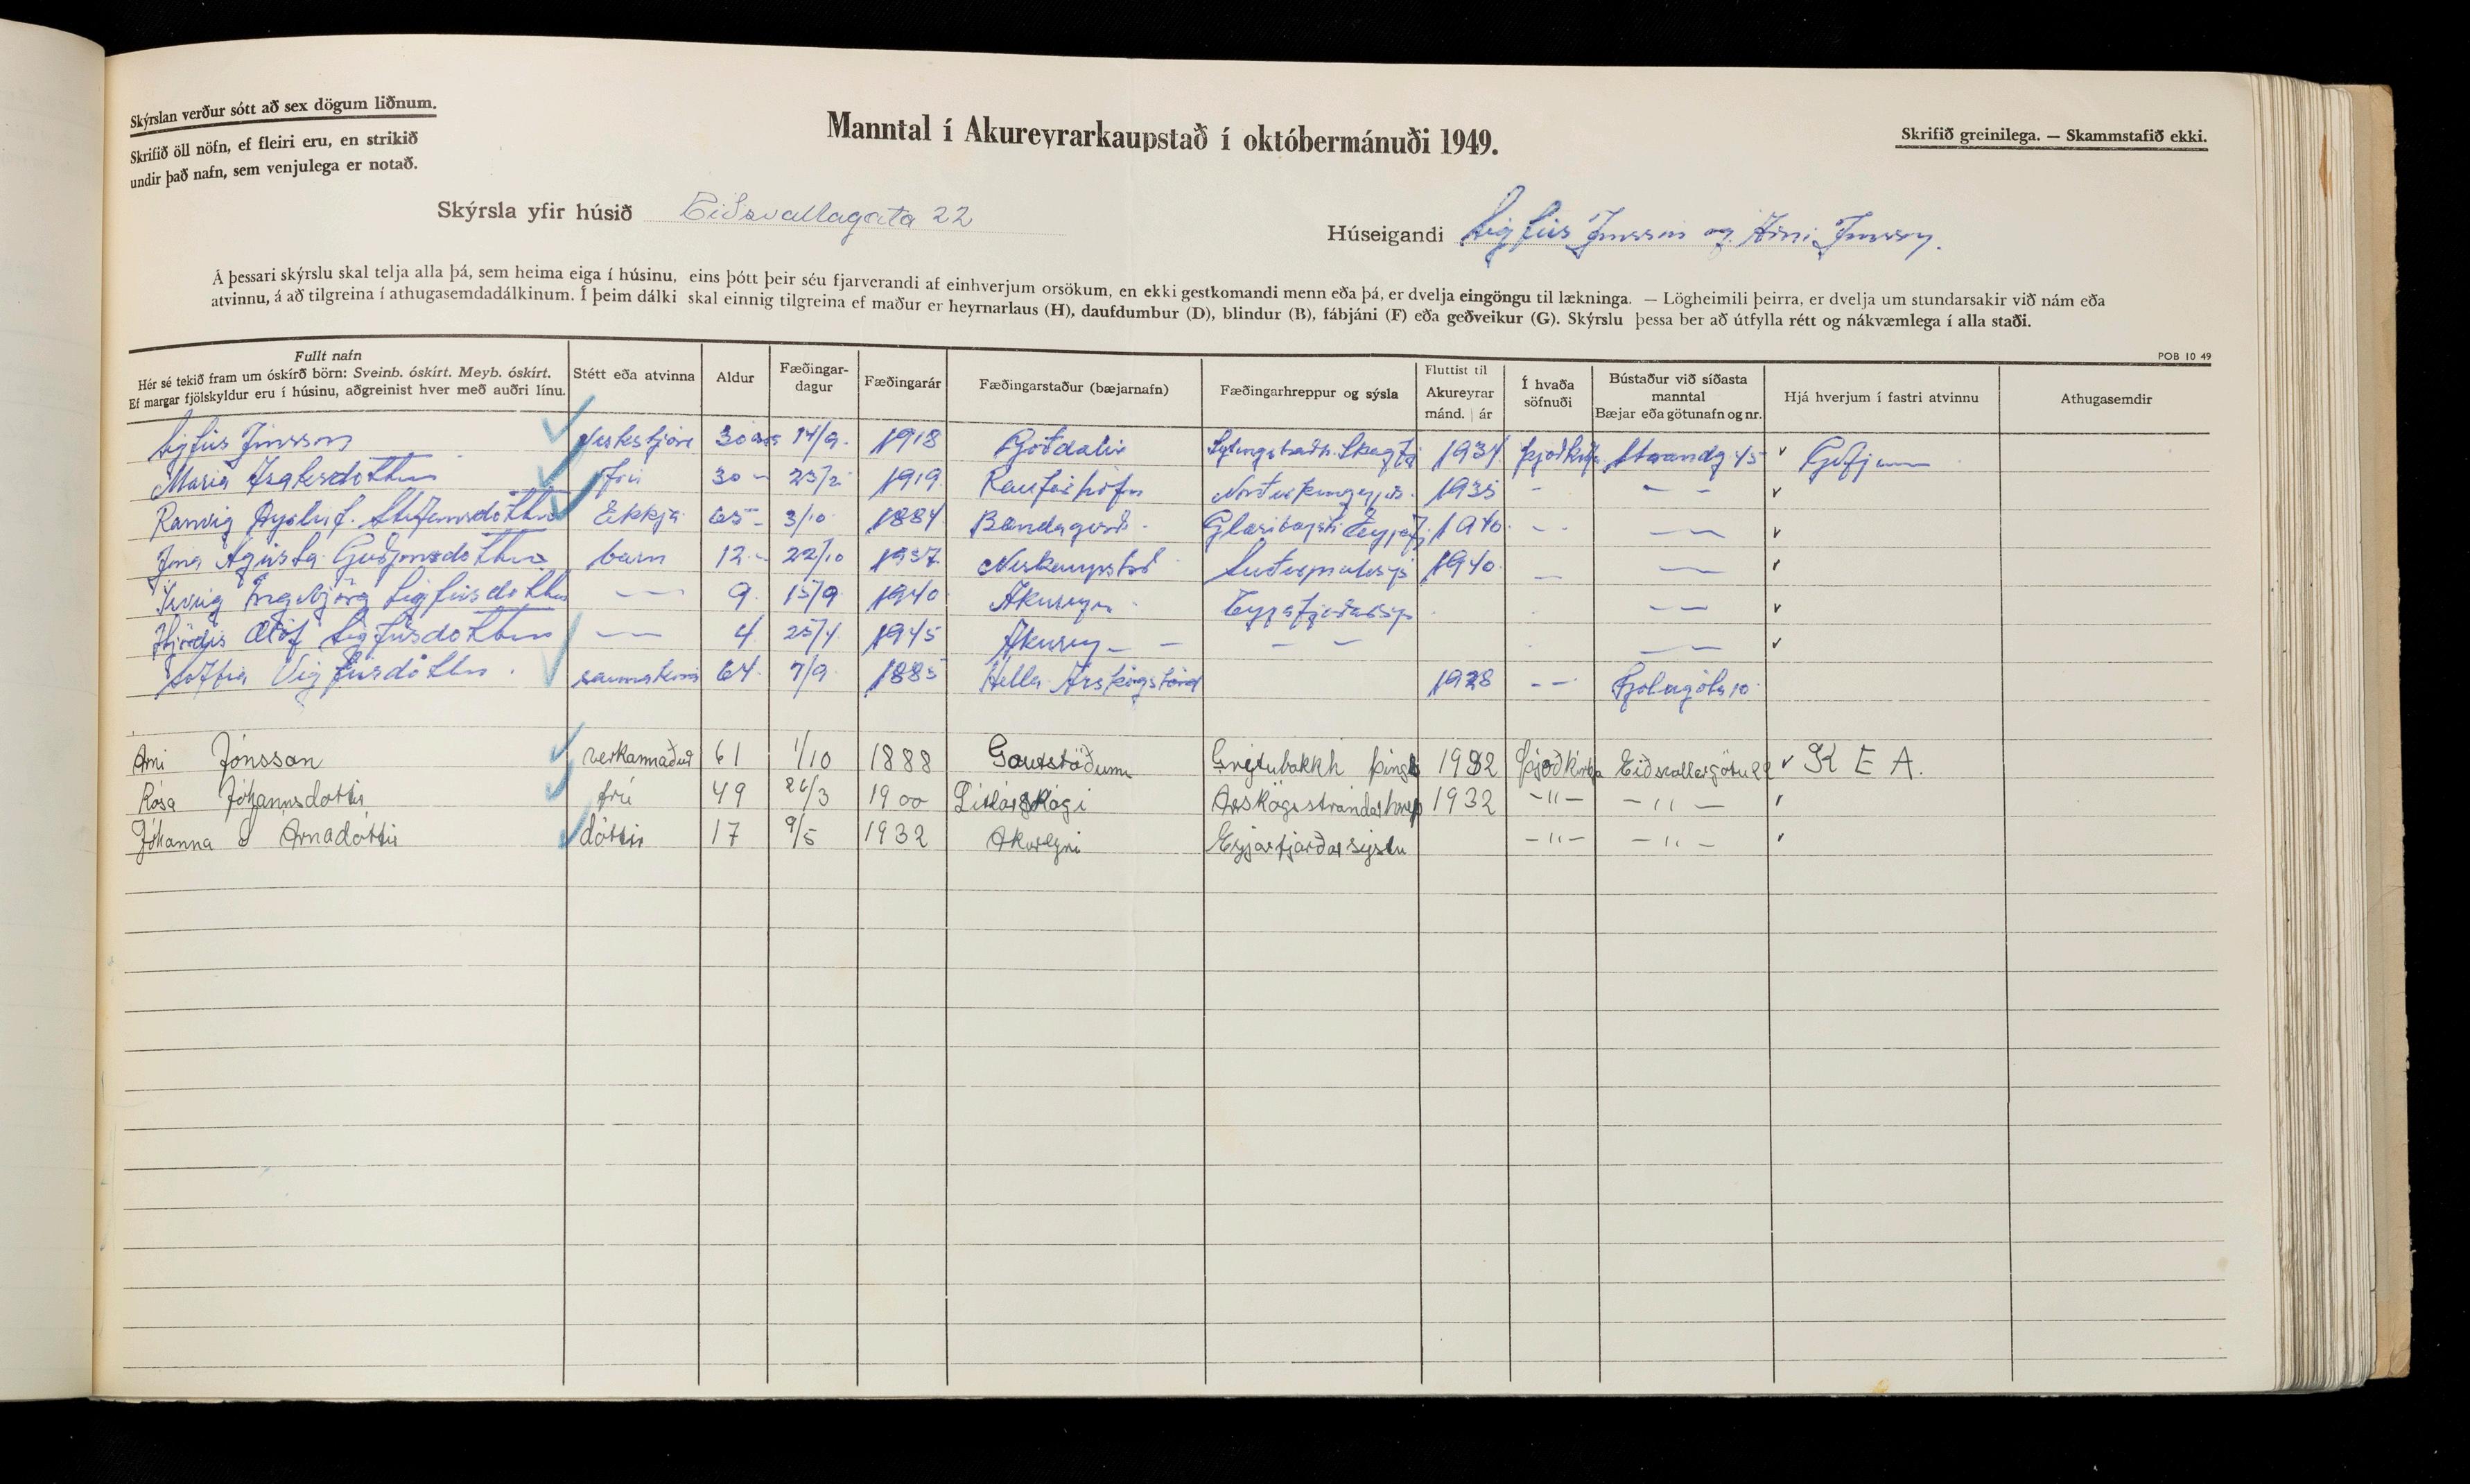 Skýrslan verður sótt að sex dögum liðnum.
Skrifið öll nöfn, ef fleiri eru, en strikið
undir það nafn, sem venjulega er notað.
Manntal í Akureyrarkaupstað í októbermánuði 1949.
Skrifið greinilega. — Skammstafið ekki.
Skýrsla yfir húsið Eiðsvallagata 22
Húseigandi Sigfús Jónsson og Árni Jónsson.
Á þessari skýrslu skal telja alla þá, sem heima eiga í húsinu, eins þótt þeir séu fjarverandi af einhverjum orsökum, en ekki gestkomandi menn eða þá, er dvelja eingöngu til lækninga. — Lögheimili þeirra, er dvelja um stundarsakir við nám eða
atvinnu, á að tilgreina í athugasemdadálkinum. Í þeim dálki skal einnig tilgreina ef maður er heyrnarlaus (H), daufdumbur (D), blindur (B), fábjáni (F) eða geðveikur (G). Skýrslu þessa ber að útfylla rétt og nákvæmlega í alla staði.
POB 10 49
Fullt nafn
Hér sé tekið fram um óskírð börn: Sveinb. óskírt. Meyb. óskírt.
Ef margar fjölskyldur eru í húsinu, aðgreinist hver með auðri línu.
Stétt eða atvinna
Aldur
Fæðingar-
dagur
Fæðingarár
Fæðingarstaður (bæjarnafn)
Fæðingarhreppur og sýsla
Fluttist til
Akureyrar
mánd. | ár
Í hvaða
söfnuði
Bústaður við síðasta
manntal
Bæjar eða götunafn og nr.
Hjá hverjum í fastri atvinnu
Athugasemdir
Sigfús Jónsson 14/9 1918 Goðdalir 1934 Strandg 45 Gefjun
María Ísaksdóttir frú 30 1919 Raufarhöfn 1935
Ranveig Stefánsdóttir Ekkja 65 3/10 1884 1940
Guðjónsdóttir barn 12 22/10 1937 Neskaupstað 1940
Ingibjörg Sigfúsdóttir 9 15/9 1940 Akureyri
Hjördís Ólöf Sigfúsdóttir 4 25/4 1945
Soffía Vigfúsdóttir saumakona 64 7/9 1885 Hella Árskógströnd 1928
Árni Jónsson verkamaður 61 1/10 1888 Gautstöðum Þjóðkirkja Eiðsvallagötu 22 K E A.
Rósa Jóhannsdottir frú 49 26/3 1900 Litlaskógi Arskógsstrandarhrepp 1932 -"- -"-
Jóhanna Arnadóttir dóttir 17 9/5 1932 Akureyri Eyjarfjarðarsýslu -"- -"-